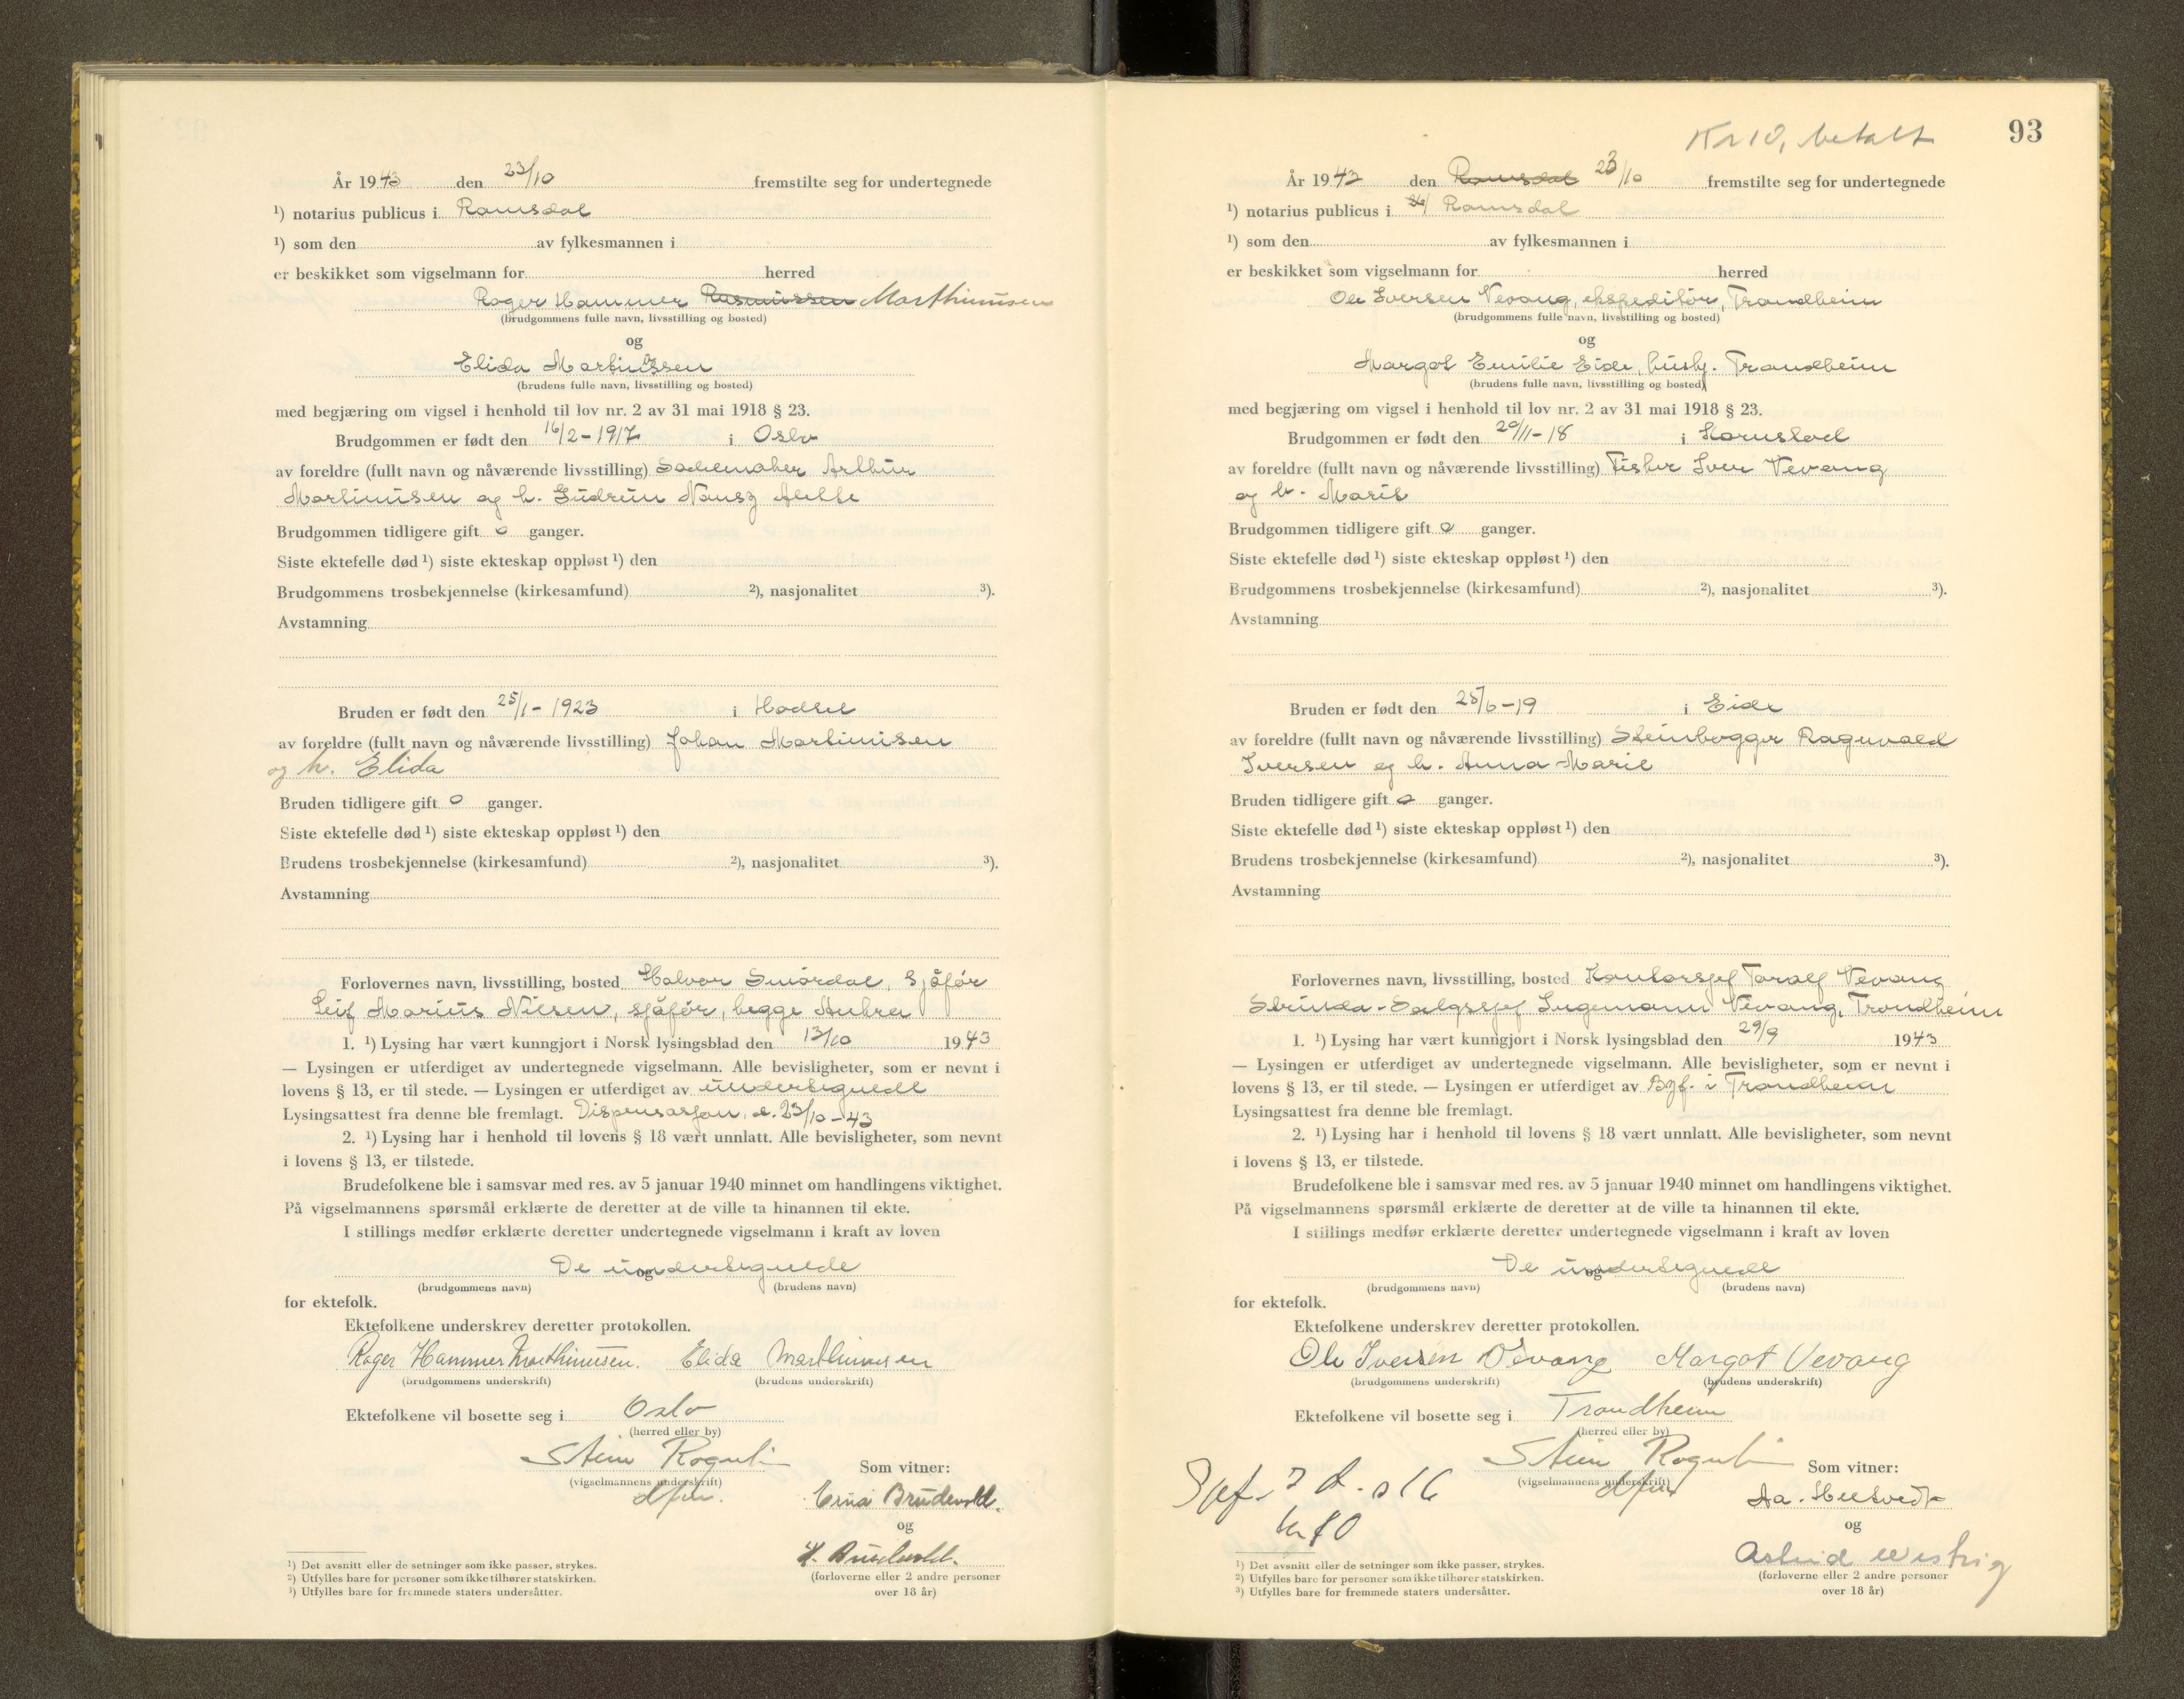 År 1943 den 23/10 fremstilte seg for undertegnede
¹) notarius publicus i Romsdal
¹) som den av fylkesmannen i
er beskikket som vigselmann for herred
Roger Hammer Rasmussen Marthinusen
(brudgommens fulle navn, livsstilling og bosted)
og
Elida Martinussen
(brudens fulle navn, livsstilling og bosted)
med begjæring om vigsel i henhold til lov nr. 2 av 31 mai 1918 § 23.
Brudgommen er født den 16/2-1917 i Oslo
av foreldre (fullt navn og nåværende livsstilling) Arthur
Martinusen og h. Gudrun Nansy
Brudgommen tidligere gift 0 ganger.
Siste ektefelle død ¹) siste ekteskap oppløst ¹) den
Brudgommens trosbekjennelse (kirkesamfund) ²), nasjonalitet ³).
Avstamning
Bruden er født den 25/1-1923 i Hadsel
av foreldre (fullt navn og nåværende livsstilling) Johan Martinusen
og h. Elida
Bruden tidligere gift 0 ganger.
Siste ektefelle død ¹) siste ekteskap oppløst ¹) den
Brudens trosbekjennelse (kirkesamfund) ²), nasjonalitet ³).
Avstamning
Forlovernes navn, livsstilling, bosted Halvor sjåfør
Leif Marius Nilsen, sjåfør, begge Aukra
1. ¹) Lysing har vært kunngjort i Norsk lysingsblad den 13/10 1943
— Lysingen er utferdiget av undertegnede vigselmann. Alle bevisligheter, som er nevnt i
lovens § 13, er til stede. — Lysingen er utferdiget av undertegnede
Lysingsattest fra denne ble fremlagt. Dispensasjon d. 23/10-43
2. ¹) Lysing har i henhold til lovens § 18 vært unnlatt. Alle bevisligheter, som nevnt
i lovens § 13, er tilstede.
Brudefolkene ble i samsvar med res. av 5 januar 1940 minnet om handlingens viktighet.
På vigselmannens spørsmål erklærte de deretter at de ville ta hinannen til ekte.
I stillings medfør erklærte deretter undertegnede vigselmann i kraft av loven
De undertegnede
og
(brudgommens navn) (brudens navn)
for ektefolk.
Ektefolkene underskrev deretter protokollen.
Roger Hammer Marthinusen. Elida Marthinusen
(brudgommens underskrift) (brudens underskrift)
Ektefolkene vil bosette seg i Oslo
(herred eller by)
Stein Rognli
(vigselmannens underskrift)
dfm.
Som vitner:
Erna Brudevold.
og
(forloverne eller 2 andre personer
over 18 år)
¹) Det avsnitt eller de setninger som ikke passer, strykes.
²) Utfylles bare for personer som ikke tilhører statskirken.
³) Utfylles bare for fremmede staters undersåtter.
Kr 10, betalt
93
År 1943 den Romsdal 23/10 fremstilte seg for undertegnede
¹) notarius publicus i Romsdal
¹) som den av fylkesmannen i
er beskikket som vigselmann for herred
Ole Iversen Vevang, ekspeditør, Trondheim
(brudgommens fulle navn, livsstilling og bosted)
og
Margot Emilie Eide, hush. Trondheim
(brudens fulle navn, livsstilling og bosted)
med begjæring om vigsel i henhold til lov nr. 2 av 31 mai 1918 § 23.
Brudgommen er født den 20/11-18 i Kornstad
av foreldre (fullt navn og nåværende livsstilling) Fisker Iver Vevang
og h. Marit
Brudgommen tidligere gift 0 ganger.
Siste ektefelle død ¹) siste ekteskap oppløst ¹) den
Brudgommens trosbekjennelse (kirkesamfund) ²), nasjonalitet ³).
Avstamning
Bruden er født den 25/6-19 i Eide
av foreldre (fullt navn og nåværende livsstilling) Steinhogger Ragnvald
Iversen og h. Anna Marie
Bruden tidligere gift 0 ganger.
Siste ektefelle død ¹) siste ekteskap oppløst ¹) den
Brudens trosbekjennelse (kirkesamfund) ²), nasjonalitet ³).
Avstamning
Forlovernes navn, livsstilling, bosted Kontorsjef Toralf Vevang
Strinda - Salgssjef Ingemann Vevang, Trondheim
1. ¹) Lysing har vært kunngjort i Norsk lysingsblad den 29/9 1943
— Lysingen er utferdiget av undertegnede vigselmann. Alle bevisligheter, som er nevnt i
lovens § 13, er til stede. — Lysingen er utferdiget av Byf. i Trondheim
Lysingsattest fra denne ble fremlagt.
2. ¹) Lysing har i henhold til lovens § 18 vært unnlatt. Alle bevisligheter, som nevnt
i lovens § 13, er tilstede.
Brudefolkene ble i samsvar med res. av 5 januar 1940 minnet om handlingens viktighet.
På vigselmannens spørsmål erklærte de deretter at de ville ta hinannen til ekte.
I stillings medfør erklærte deretter undertegnede vigselmann i kraft av loven
De undertegnede
og
(brudgommens navn) (brudens navn)
for ektefolk.
Ektefolkene underskrev deretter protokollen.
Ole Iversen Vevang Margot Vevang
(brudgommens underskrift) (brudens underskrift)
Ektefolkene vil bosette seg i Trondheim
(herred eller by)
Stein Rognli
(vigselmannens underskrift)
dfm
Som vitner:
Aa.
og
Astrid
(forloverne eller 2 andre personer
over 18 år)
¹) Det avsnitt eller de setninger som ikke passer, strykes.
²) Utfylles bare for personer som ikke tilhører statskirken.
³) Utfylles bare for fremmede staters undersåtter.